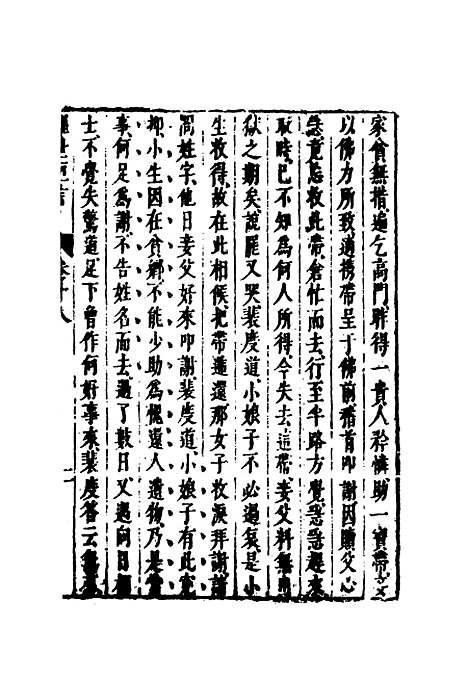 家貧無措遍乞高門聯得一貴人矜憐助一寶帶
以佛力所致適携帶呈于佛前稽首叩謝因贖父心
急竟忘收此帶倉忙而去行至半路方覺急急趕來
取時已不知爲何人所得今失去這帶妾父料無
獄之期矣說罷又哭裴度道小娘子不必過哀是小
生收得故在此相候把帶遞還那女子收淚拜謝請
問姓字他日妾父好來叩謝裴度道小娘子有此
抑小生因在貧鄉不能少助爲愧還人遺物乃是常
事何足爲謝不告姓名而去過了數日又遇向日相
士不覺失驚道足下曾作何好事來裴度答云無
卷十八
二